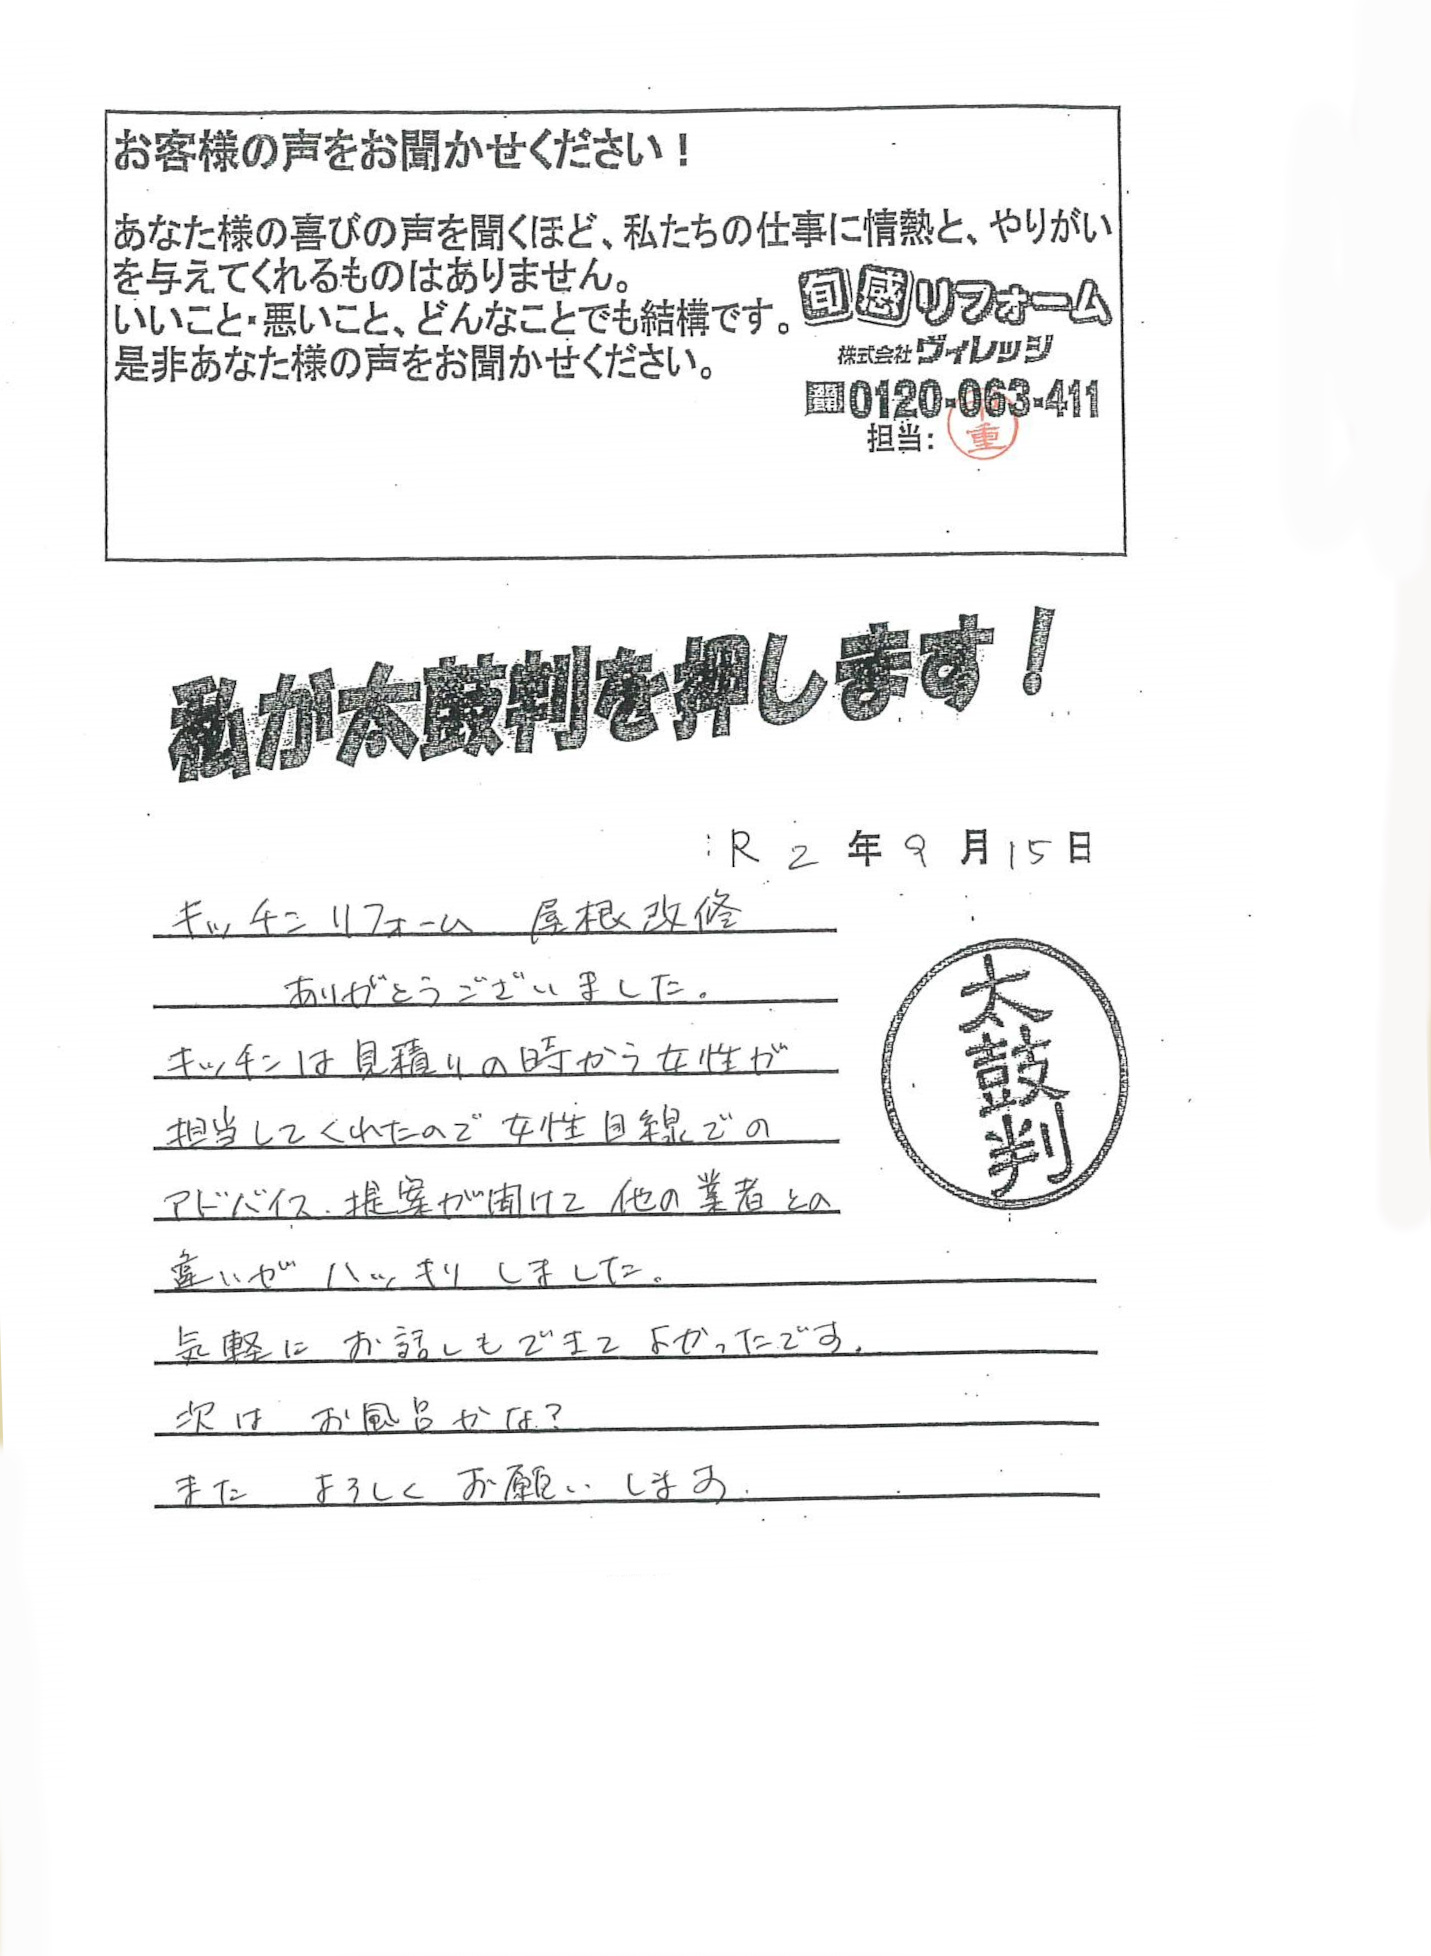 お客様の声をお聞かせください！
あなた様の喜びの声を聞くほど、私たちの仕事に情熱と、やりがい
を与えてくれるものはありません。
いいこと・悪いこと、どんなことでも結構です。
是非あなた様の声をお聞かせください。
旬感リフォーム
株式会社ヴィレッジ
0120-063-411
担当：
重
私が太鼓判を押します！
R2年9月15日
キッチンリフォーム 屋根改修
ありがとうございました。
キッチンは見積りの時から女性が
担当してくれたので女性目線での
アドバイス、提案が聞けて他の業者との
違いがハッキリしました。
気軽にお話しもできてよかったです。
次はお風呂かな？
また よろしくお願いします。
太鼓判